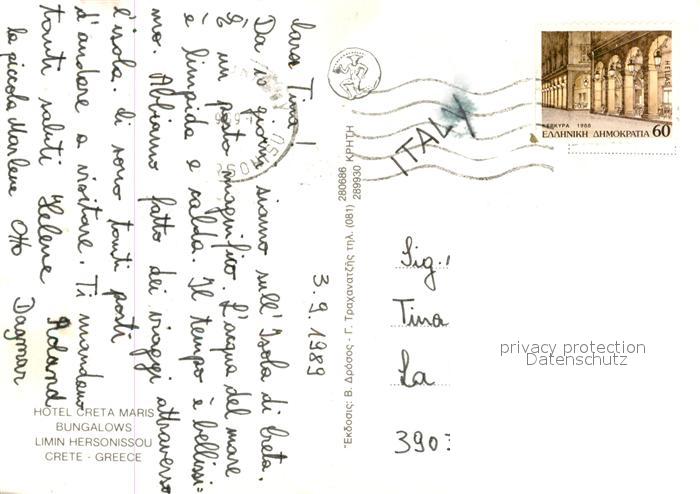 3.9.1989
Cara Tina!
Da 10 giorni siamo sull'Isola di Creta.
È un posto magnifico. L'acqua del mare
è limpida e calda. Il tempo è bellissi=
mo. Abbiamo fatto dei viaggi attraverso
l'isola. Ci sono tanti posti
d'andare a visitare. Ti mandano
tanti saluti Helene Roland
la piccola Marlene Otto Dagmar
HOTEL CRETA MARIS
BUNGALOWS
LIMIN HERSONISSOU
CRETE - GREECE
Ἔκδοσις: Β. Δρόσος - Γ. Τραχανατζής τηλ. (081) 280686
289930 ΚΡΗΤΗ
ITALY
ΚΕΡΚΥΡΑ 1988
HELLAS
ΕΛΛΗΝΙΚΗ ΔΗΜΟΚΡΑΤΙΑ 60
Sig.
Tina
La
390
privacy protection
Datenschutz